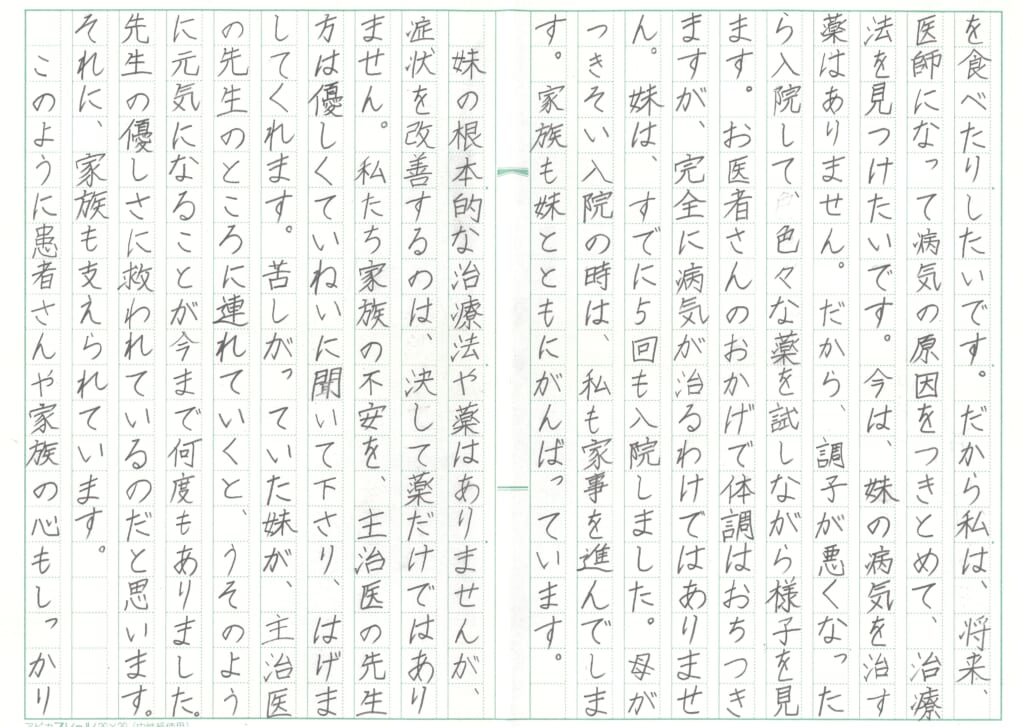 を食べたりしたいです。だから私は、将来、
医師になって病気の原因をつきとめて、治療
法を見つけたいです。今は、妹の病気を治す
薬はありません。だから、調子が悪くなった
ら入院して、色々な薬を試しながら様子を見
ます。お医者さんのおかげで体調はおちつき
ますが、完全に病気が治るわけではありませ
ん。妹は、すでに5回も入院しました。母が
つきそい入院の時は、私も家事を進んでしま
す。家族も妹とともにがんばっています。
妹の根本的な治療法や薬はありませんが、
症状を改善するのは、決して薬だけではあり
ません。私たち家族の不安を、主治医の先生
方は優しくていねいに聞いて下さり、はげま
してくれます。苦しがっていた妹が、主治医
の先生のところに連れていくと、うそのよう
に元気になることが今まで何度もありました。
先生の優しさに救われているのだと思います。
それに、家族も支えられています。
このように患者さんや家族の心もしっかり